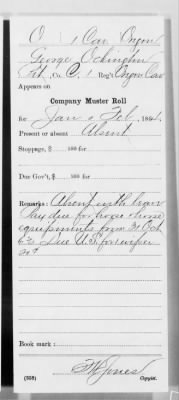 C 1 Cav. Oregon
George
Pvt., Co. C, 1 Reg't Oregon Cav
Appears on
Company Muster Roll
for Jan & Feb, 1864.
Present or absent Absent
Stoppage, $ 100 for
Due Gov't, $ 100 for
Remarks: Absent with leave
Pay due for horse & horse
equipments from 31 Oct
63 Due U.S. for
Book mark:
Jones
(358) Copyist.